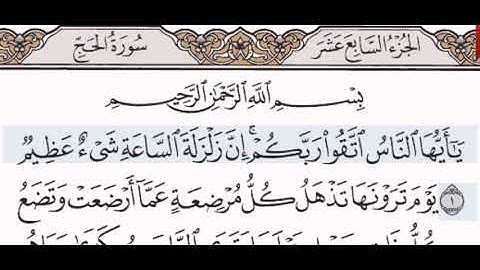 الجُزْءُ السَّابِعَ عَشَرَ
سُورَةُ الحَجِّ
بِسْمِ ٱللَّهِ ٱلرَّحْمَٰنِ ٱلرَّحِيمِ
يَٰٓأَيُّهَا ٱلنَّاسُ ٱتَّقُوا۟ رَبَّكُمْ ۚ إِنَّ زَلْزَلَةَ ٱلسَّاعَةِ شَىْءٌ عَظِيمٌ
۝١ يَوْمَ تَرَوْنَهَا تَذْهَلُ كُلُّ مُرْضِعَةٍ عَمَّآ أَرْضَعَتْ وَتَضَعُ